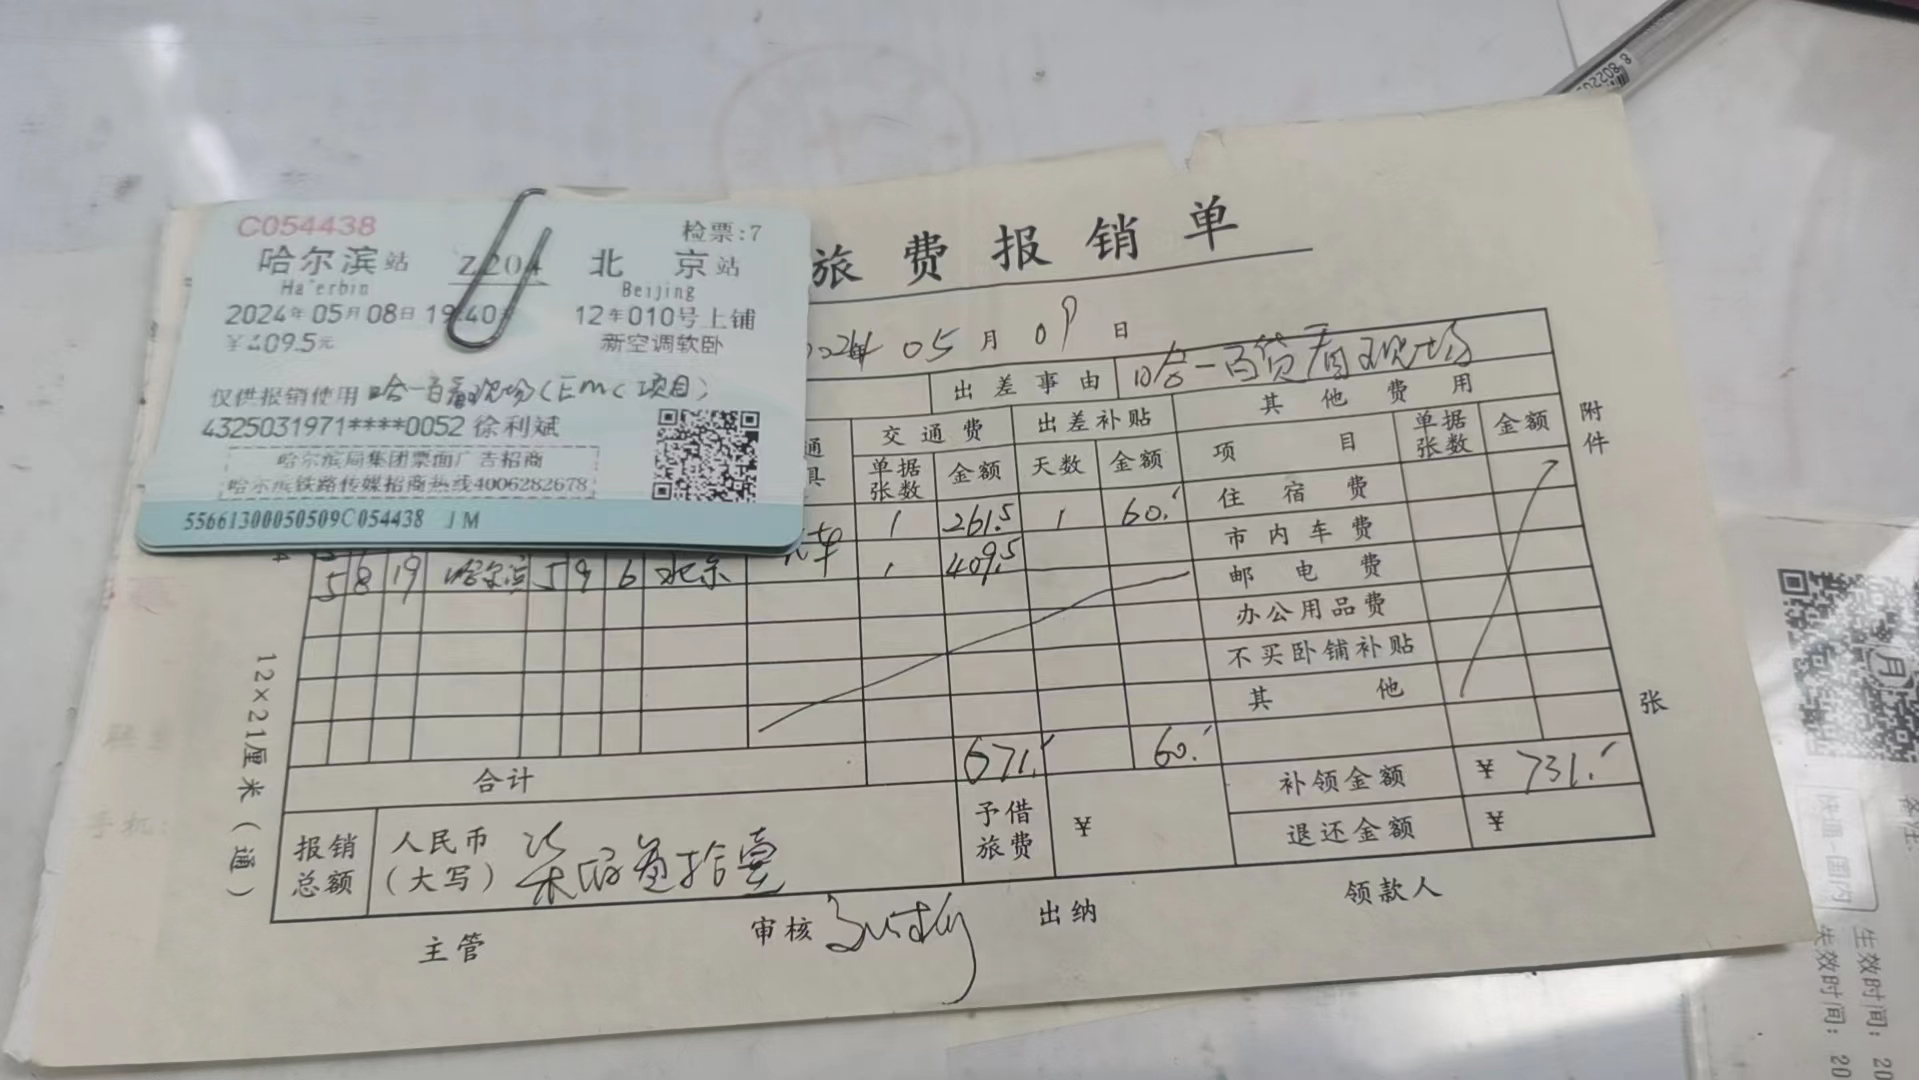 C054438
检票:7
哈尔滨站 Z204 北京站
Ha'erbin Beijing
2024年05月08日19:40 12车010号上铺
¥409.5元 新空调软卧
仅供报销使用 哈一百看现场(EMC项目)
4325031971****0052 徐利斌
哈尔滨局集团票面广告招商
哈尔滨铁路传媒招商热线4006282678
55661300050509C054438 JM
旅费报销单
05月09日
出差事由 哈一百货看现场
交通费 出差补贴 其他费用
单据张数 金额 天数 金额 项目 单据张数 金额
1 261.5 1 60. 住宿费
5 8 19 哈尔滨 5 9 6 北京 1 409.5
市内车费
邮电费
办公用品费
不买卧铺补贴
其他
合计 671. 60. 补领金额 ¥731.
报销总额 人民币(大写) 柒佰叁拾壹 予借旅费 ¥ 退还金额 ¥
主管 审核 出纳 领款人
附件
张
12×21厘米(通)
生效时间: 20
失效时间: 20